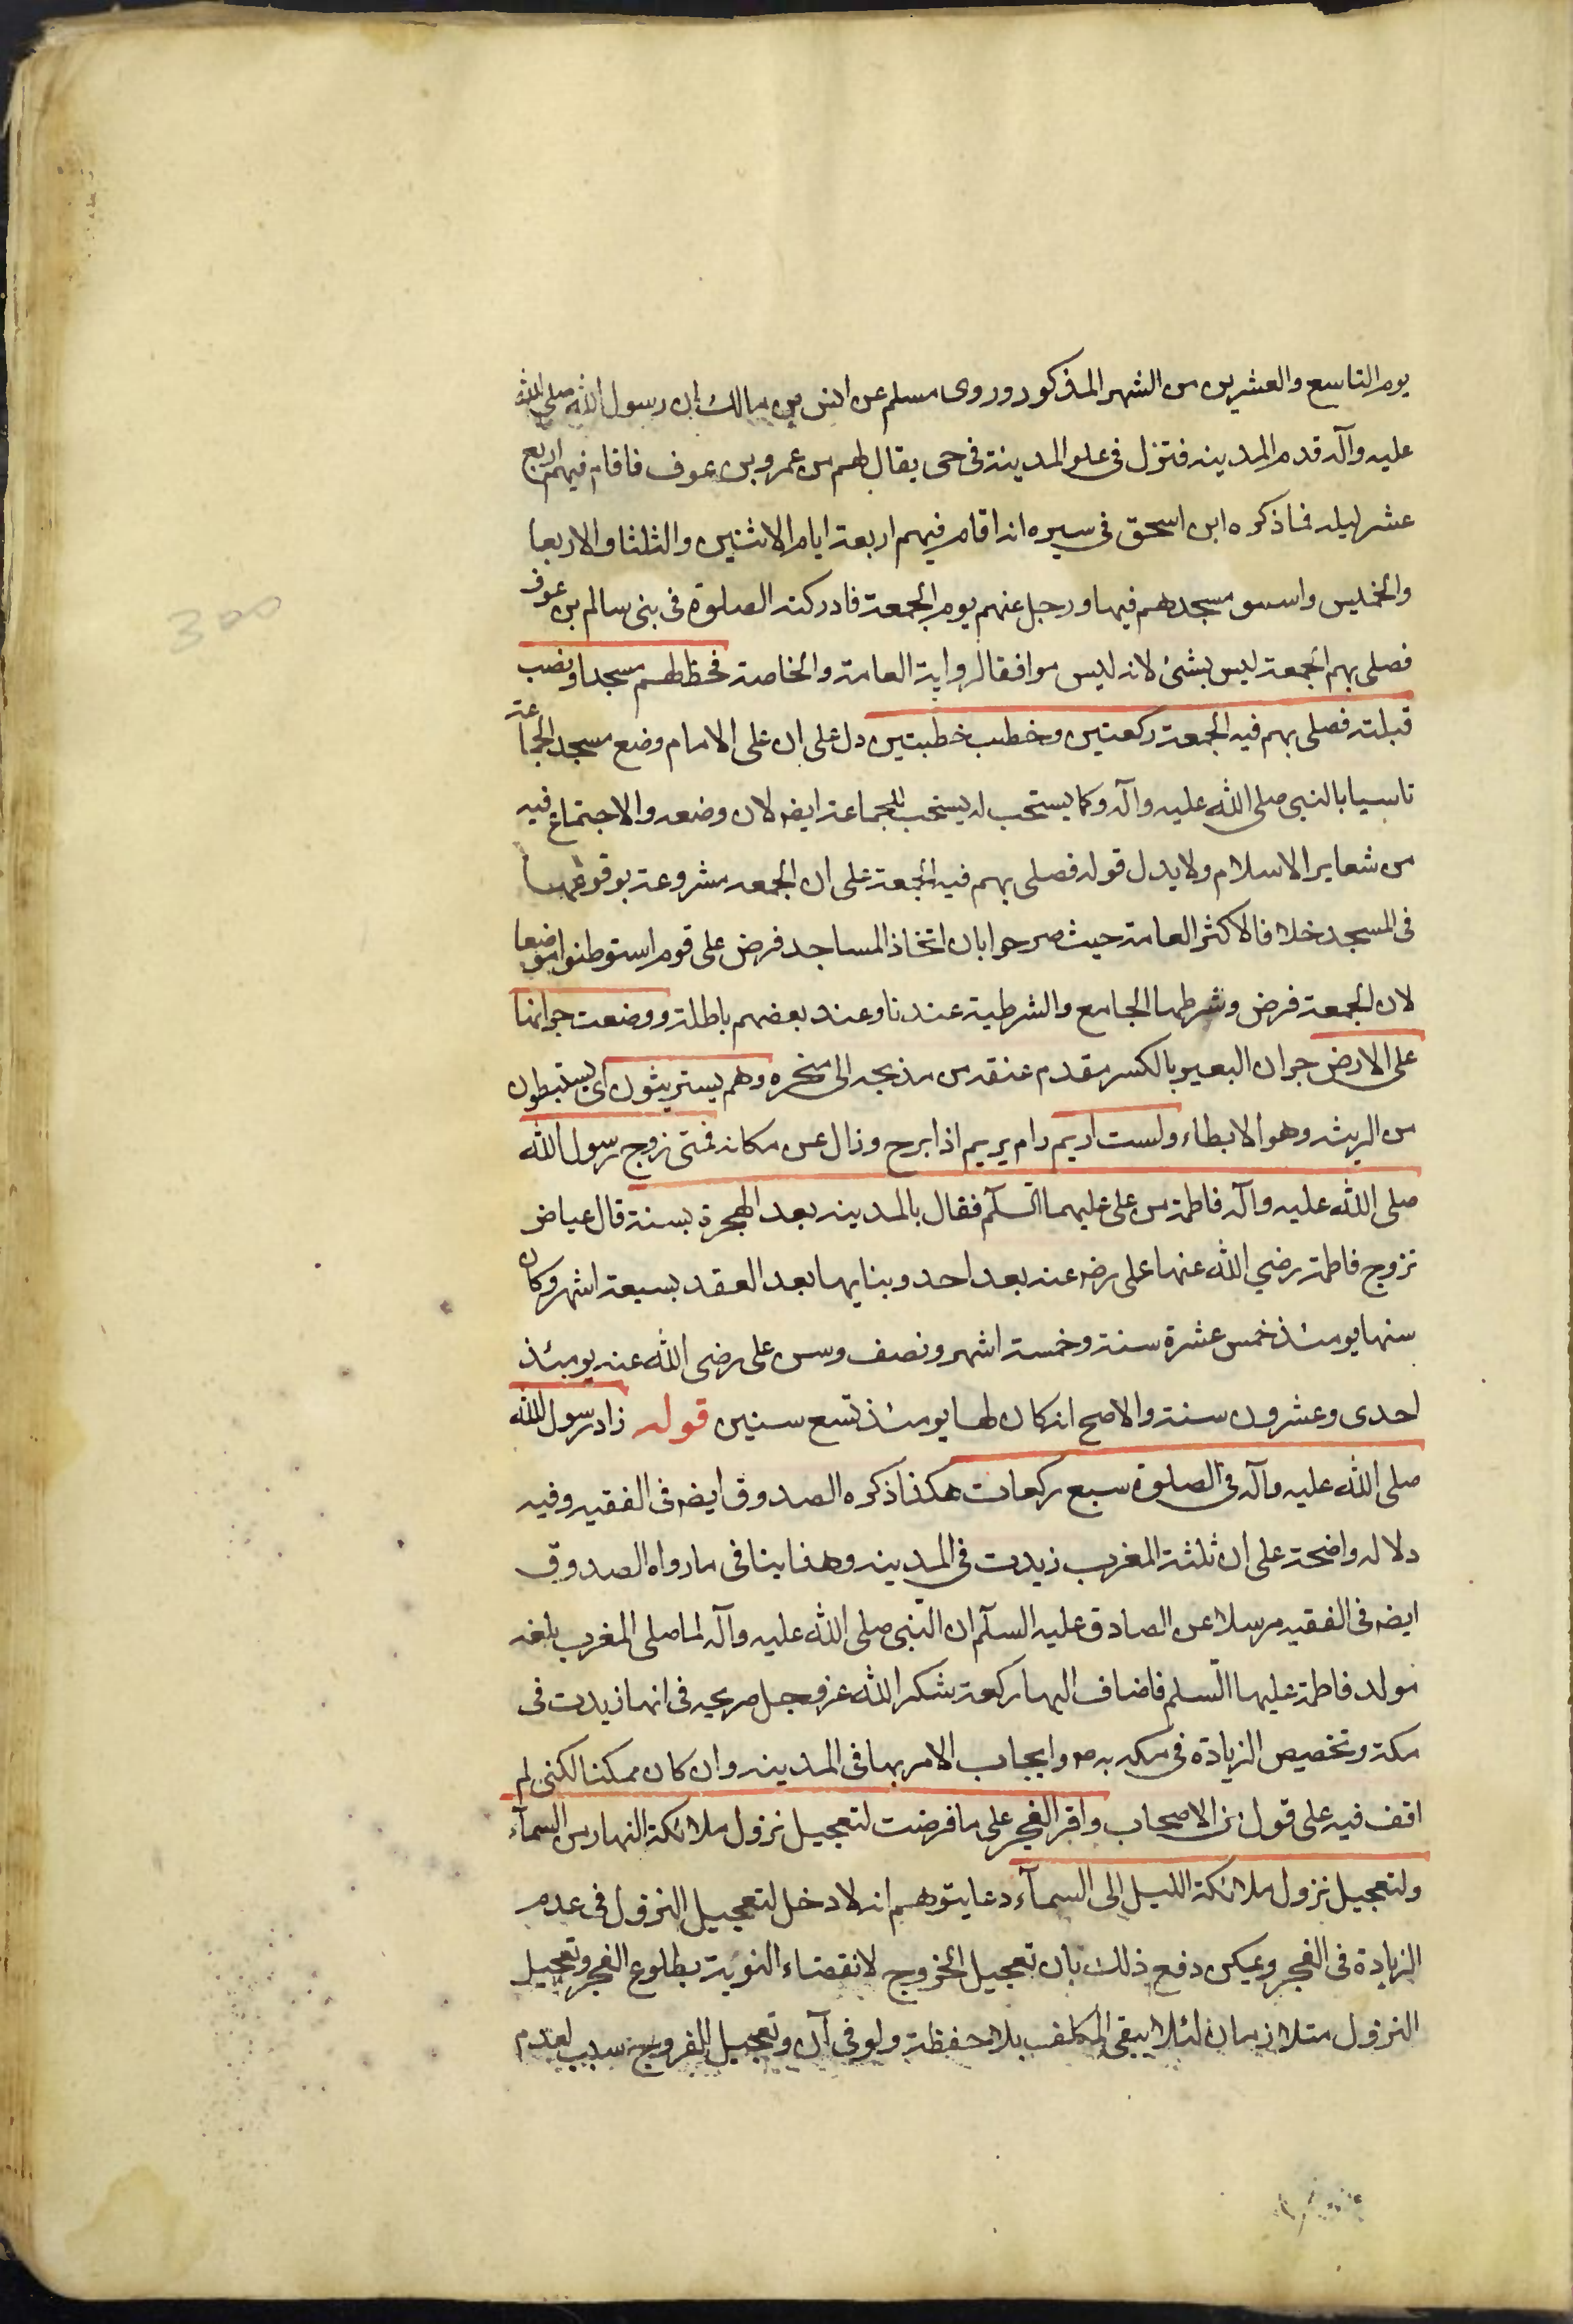 يوم التاسع والعشرين من الشهر المذكور وروى مسلم عن انس بن مالك ان رسول الله صلى الله
عليه وآله قدم المدينه فنزل فى علو المدينة فى حى يقال لهم بن عمرو بن عوف فاقام فيهم اربع
عشر ليله فما ذكره ابن اسحق فى سيره انه اقام فيهم اربعة ايام الاثنين والثلثا والاربعا
والخميس واسس مسجدهم فيها ورحل عنهم يوم الجمعة فادركته الصلوة فى بنى سالم بن عوف
فصلى بهم الجمعة ليس بشئ لانه ليس موافقا لرواية العامة والخاصة فخط لهم مسجدا ونصب
قبلته فصلى بهم فيه الجمعة ركعتين وخطب خطبتين دل على ان على الامام وضع مسجد الجماعة
تاسيا بالنبى صلى الله عليه وآله وكما يستحب له يستحب للجماعة ايضا لان وضعه والاجتماع فيه
من شعاير الاسلام ولا يدل قوله فصلى بهم فيه الجمعة على ان الجمعه مشروعة بوقوعها
فى المسجد خلافا لاكثر العامة حيث صرحوا بان اتخاذ المساجد فرض على قوم استوطنوا موضعا
لان الجمعة فرض وشرطها الجامع والشرطية عندنا وعند بعضهم باطلة ووضعت جرانها
على الارض جران البعير بالكسر مقدم عنقه من مذبحه الى منخره وهم يستريثون اى يستبطون
من الريث وهو الابطاء ولست اريم رام يريم اذا برح وزال عن مكانه فمتى زوج رسول الله
صلى الله عليه وآله فاطمة من على عليهما السلم فقال بالمدينه بعد الهجرة بسنة قال عياض
تزوج فاطمة رضي الله عنها على رضي عنه بعد احد وبنا بها بعد العقد بسبعة اشهر وكان
سنها يومئذ خمس عشرة سنة وخمسة اشهر ونصف وسن على رضى الله عنه يومئذ
احدى وعشرون سنة والاصح انه كان لها يومئذ تسع سنين قوله زاد رسول الله
صلى الله عليه وآله فى الصلوة سبع ركعات هكذا ذكره الصدوق ايضا فى الفقيه وفيه
دلاله واضحة على ان ثلثة المغرب زيدت فى المدينه وهذا ينافى ما رواه الصدوق
ايضا فى الفقيه مرسلا عن الصادق عليه السلم ان النبى صلى الله عليه وآله لما صلى المغرب بلغه
مولد فاطمة عليها السلم فاضاف اليها ركعة شكرا لله عز وجل صريحه فى انها زيدت فى
مكة وتخصيص الزيادة فى مكه به ص وايجاب الامر بها فى المدينه وان كان ممكنا لكنى لم
اقف فيه على قول من الاصحاب واقر الفجر على ما فرضت لتعجيل نزول ملائكة النهار من السمآء
ولتعجيل نزول ملائكة الليل الى السمآء دعا يتوهم انه لا دخل لتعجيل النزول فى عدم
الزيادة فى الفجر ويمكن دفع ذلك بان تعجيل الخروج لانقضاء النوبة بطلوع الفجر وتعجيل
النزول مثلا زمان لئلا يبقى المكلف بلا حفظة ولو فى آن وتعجيل العروج سبب لعدم
300